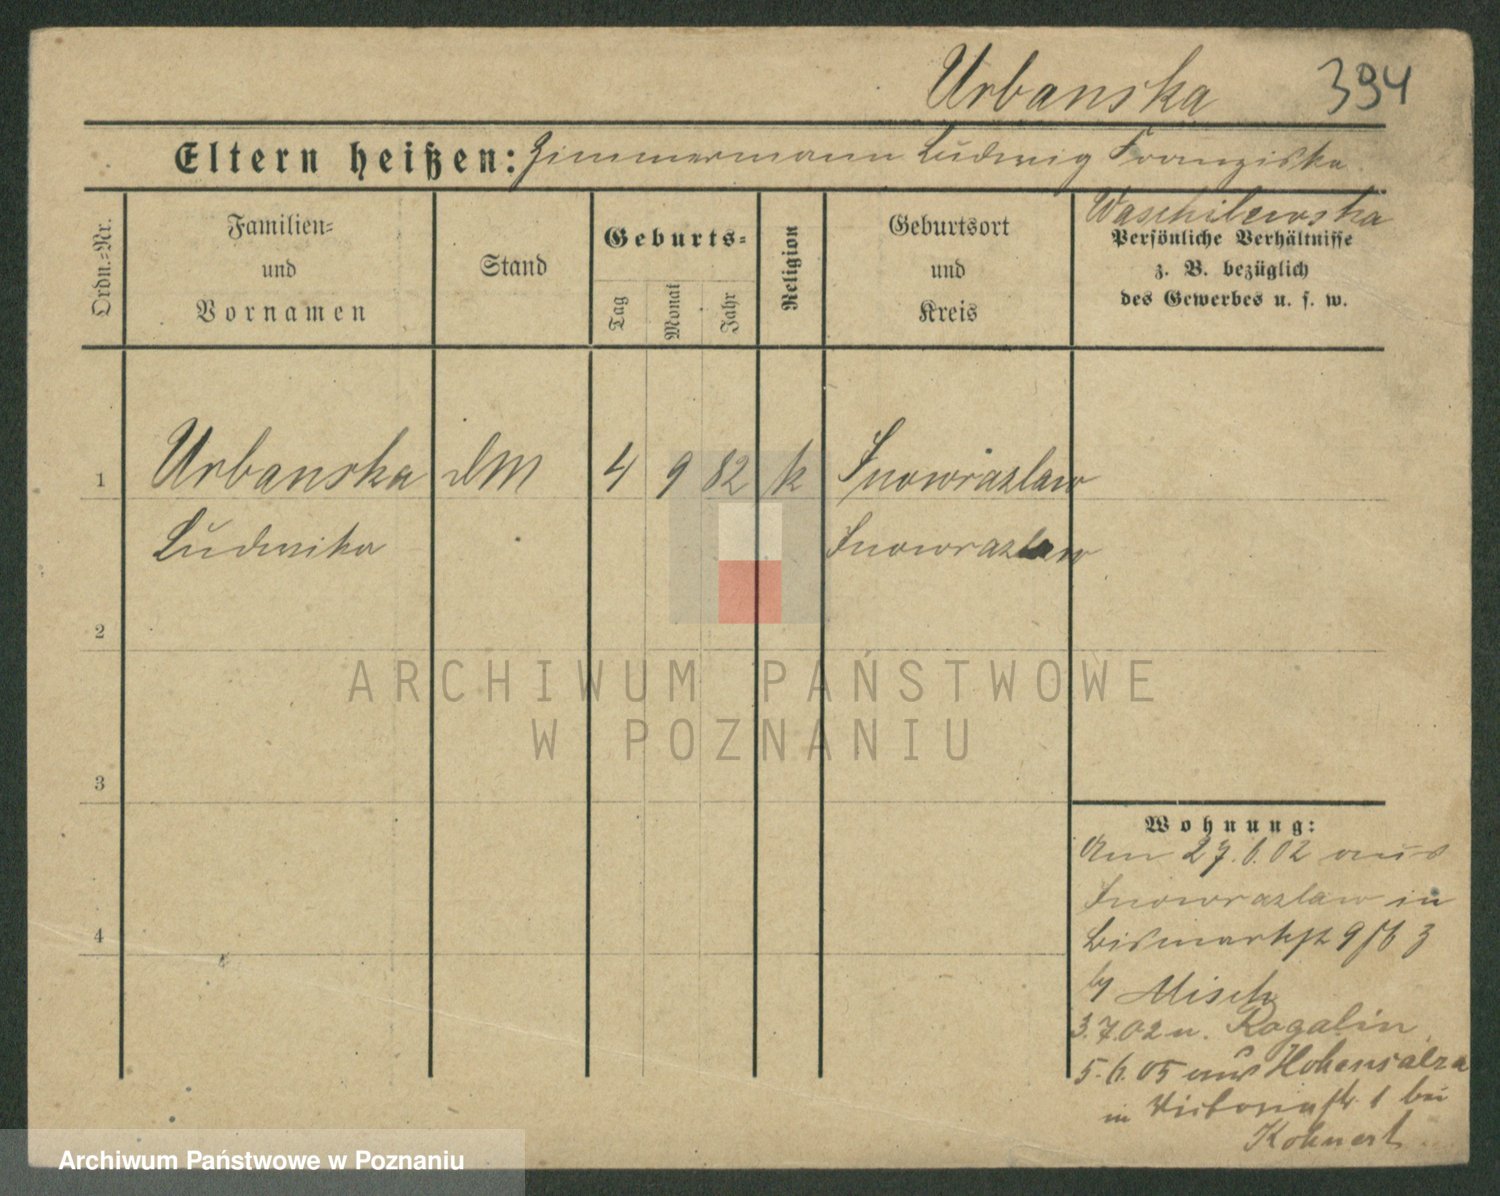 Urbanska 394
Eltern heißen: Zimmermann Ludwig Franziska
Waschilewska
Ordn.-Nr.
Familien-
und
Vornamen
Stand
Geburts-
Tag
Monat
Jahr
Religion
Geburtsort
und
Kreis
Persönliche Verhältnisse
z. B. bezüglich
des Gewerbes u. s. w.
1 Urbanska DM 4 9 82 k Inowrazlaw
Ludwika Inowrazlaw
2
3
4
ARCHIWUM PAŃSTWOWE
W POZNANIU
Wohnung:
Am 27.6.02 aus
Inowrazlaw in
Bismarkst 9
Misch
3.7.02 n. Rogalin
5.6.05 aus Hohensalza
in Victoriastr 1 bei
Kohnert
Archiwum Państwowe w Poznaniu